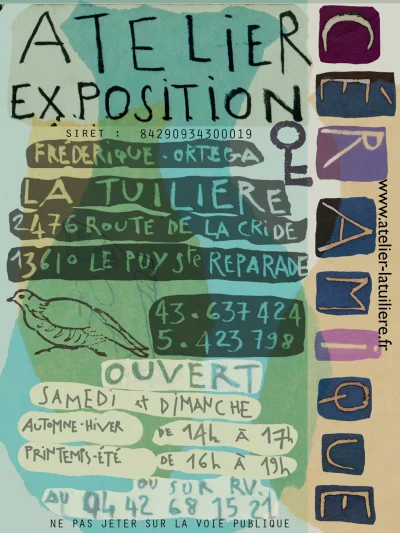 ATELIER
EXPOSITION
SIRET : 84290934300019
FRÉDERIQUE - ORTEGA
LA TUILIERE
2476 ROUTE DE LA CRIDE
13610 LE PUY Ste REPARADE
43.637424
5.423798
OUVERT
SAMEDI et DIMANCHE
AUTOMNE-HIVER DE 14h À 17h
PRINTEMPS-ÉTÉ DE 16h À 19h
OU SUR RV.
AU 04 42 68 15 21
NE PAS JETER SUR LA VOIE PUBLIQUE
CÉRAMIQUE
www.atelier-latuiliere.fr